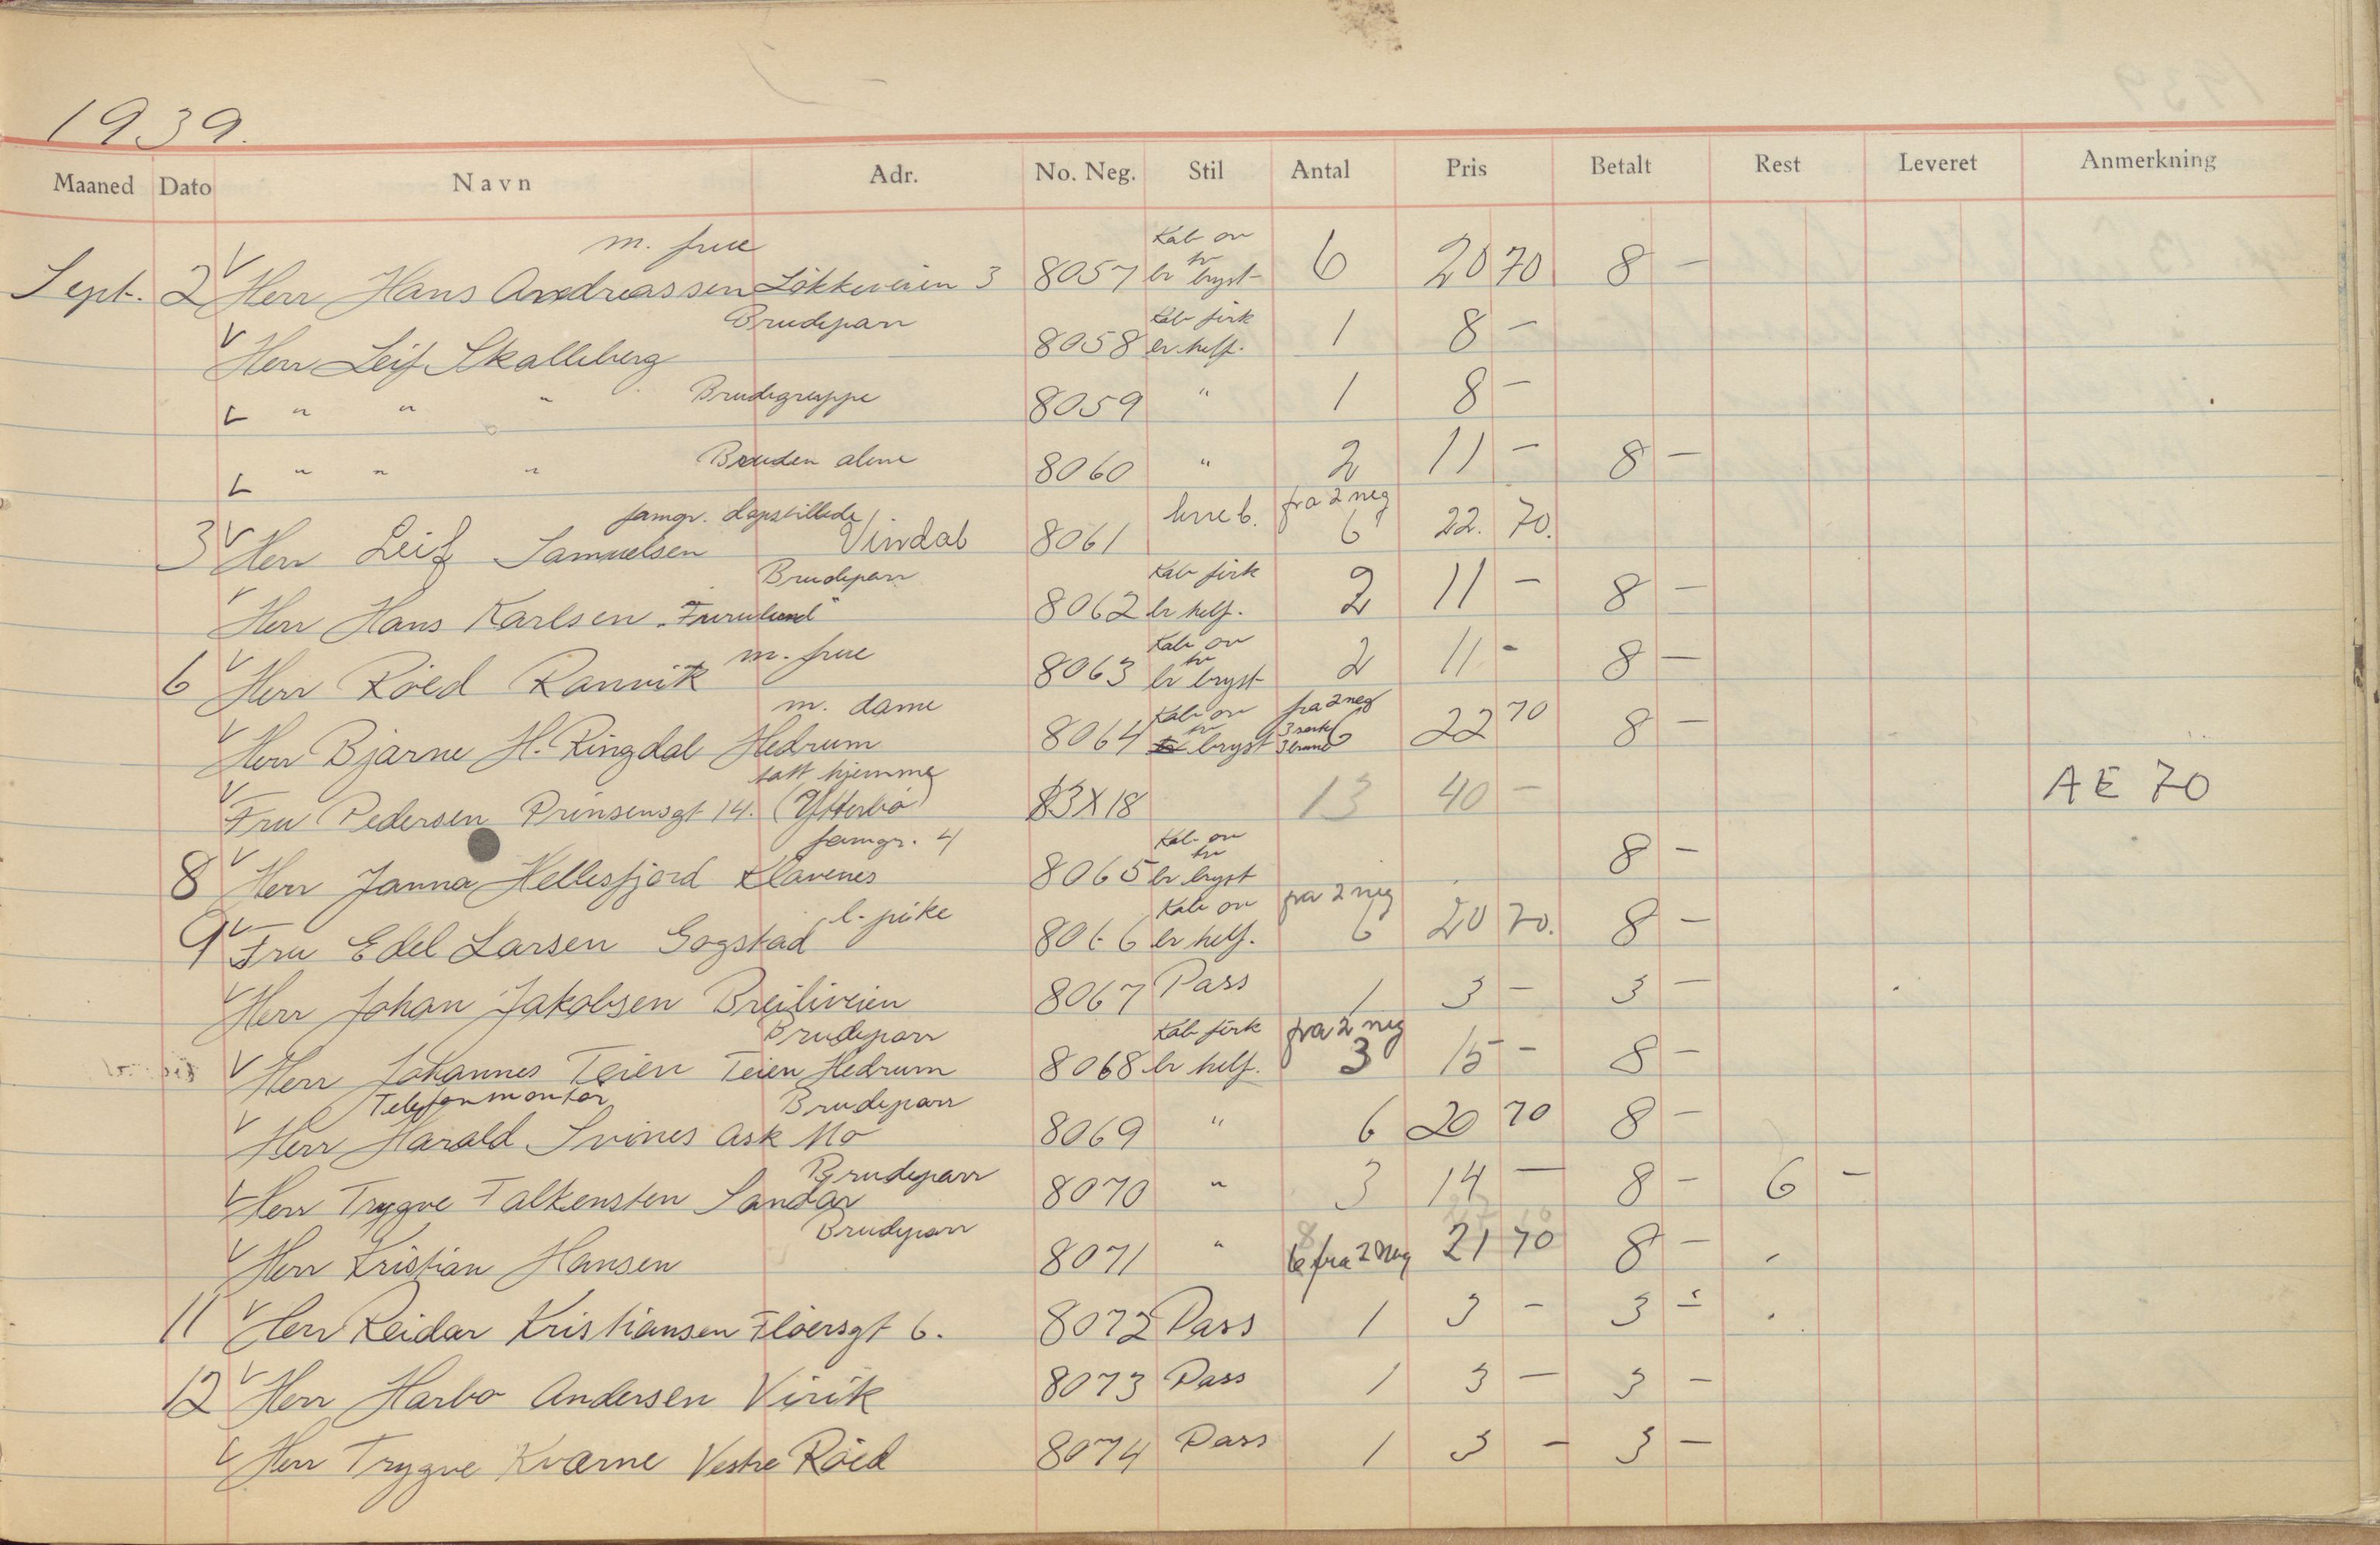 1939.
Maaned Dato Navn Adr. No. Neg. Stil Antal Pris Betalt Rest Leveret Anmerkning
m. frue Kab ov
Sept. 2 Herr Hans Andreassen Løkkeveien 3 8057 br tr bryst 6 20 70 8 -
Brudepar Kab firk
Herr Leif Skalleberg 8058 br helf. 1 8 -
" " " Brudegruppe 8059 " 1 8 -
" " " Bruden alene 8060 " 2 11 - 8 -
famgr. fra 2 neg
3 Herr Leif Samuelsen Vindal 8061 6 22. 70.
Brudepar Kab firk
Herr Hans Karlsen "Furulund" 8062 br helf. 2 11 - 8 -
m. frue Kab ov
6 Herr Røed Ranvik 8063 br tr bryst 2 11 - 8 -
m. dame Kab ov fra 2 neg
Herr Bjarne H. Ringdal Hedrum 8064 tr bryst 3 sorte 3 brune 6 22 70 8 -
tatt hjemme
Fru Pedersen Prinsensgt 14. (Ytterbø) 13X18 13 40 - AE 70
famgr. 4 Kab ov
8 Herr Janna Hellesfjord Klavenes 8065 br tr bryst 8 -
l. pike Kab ov fra 2 neg
9 Fru Edel Larsen Gogstad 8066 br helf. 6 20 70. 8 -
Herr Johan Jakobsen Breiliveien 8067 Pass 1 3 - 3 -
Brudepar Kab firk fra 2 neg
Herr Johannes Teien Teien Hedrum 8068 br helf. 3 15 - 8 -
Telefonmontør Brudepar
Herr Harald Svines Ask Mo 8069 " 6 20 70 8 -
Brudepar
Herr Trygve Falkensten Sandar 8070 " 3 14 - 8 - 6 -
Brudepar
Herr Kristian Hansen 8071 " 6 fra 2 neg 21 70 8 -
11 Herr Reidar Kristiansen Fløersgt 6. 8072 Pass 1 3 - 3 -
12 Herr Harbo Andersen Virik 8073 Pass 1 3 - 3 -
Herr Trygve Kværne Vestre Røed 8074 Pass 1 3 - 3 -